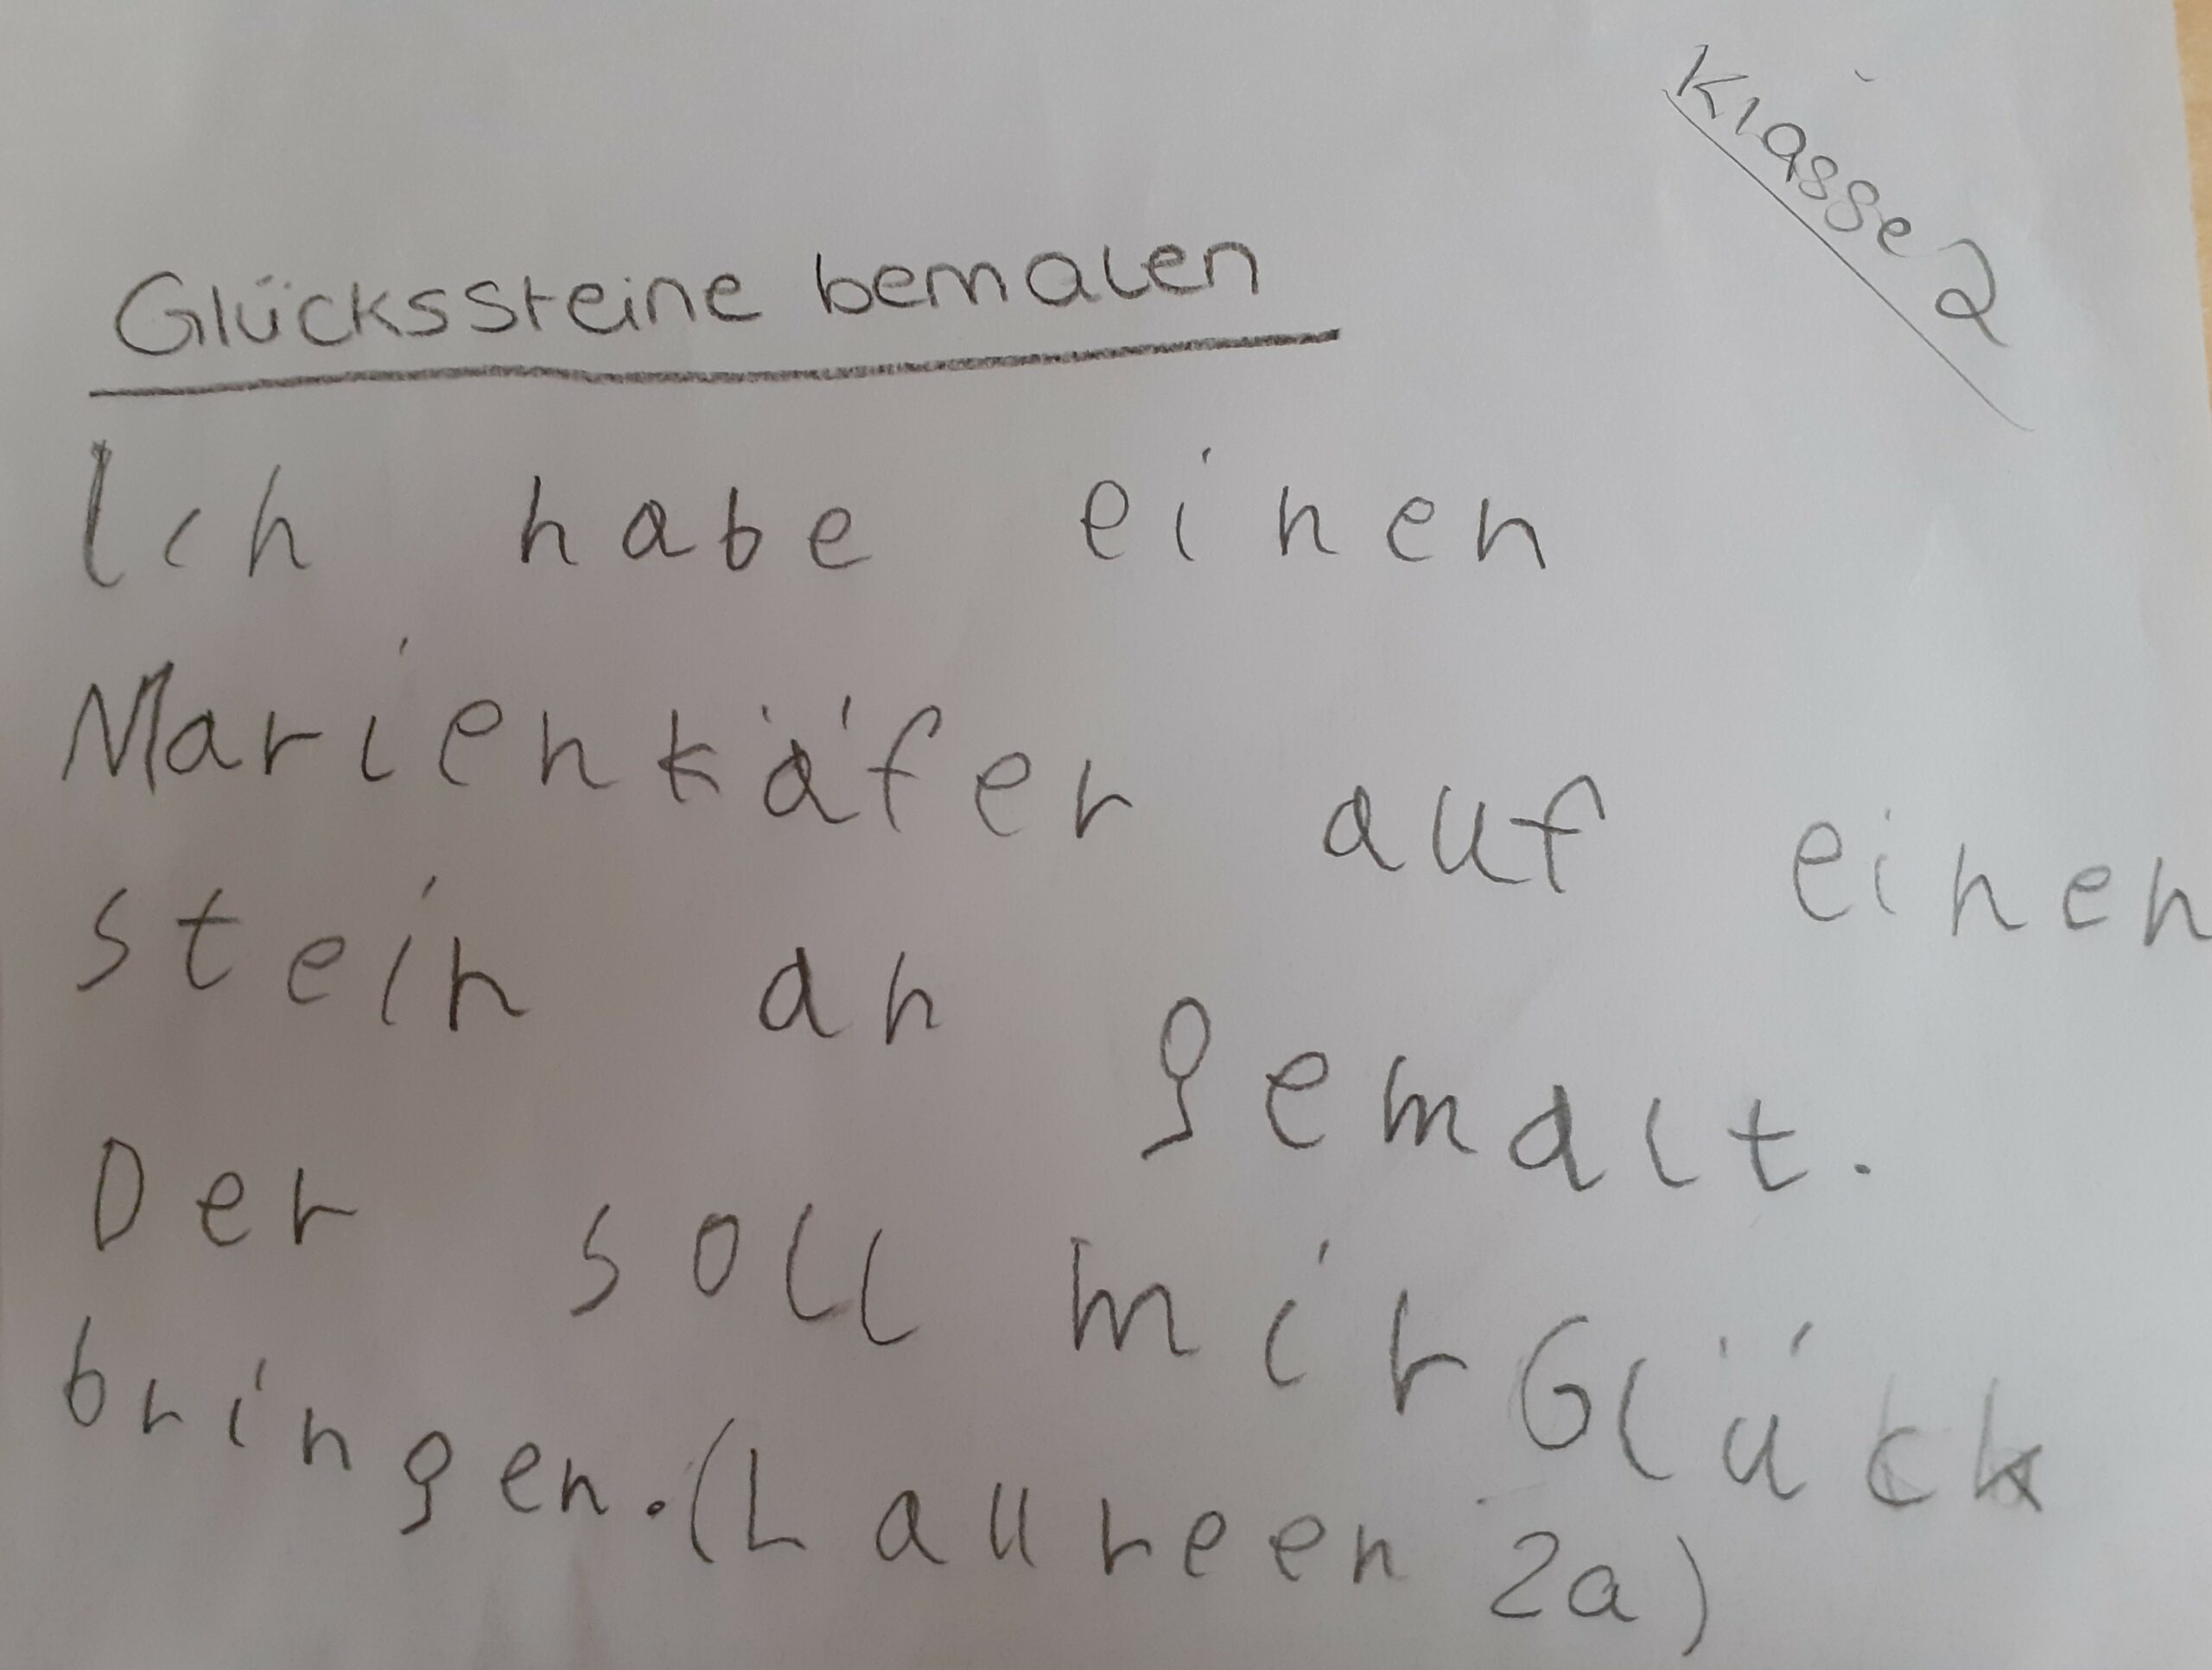 Klasse 2
Glückssteine bemalen
Ich habe einen
Marienkäfer auf einen
stein an gemalt.
Der soll mir Glück
bringen. (Laureen 2a)